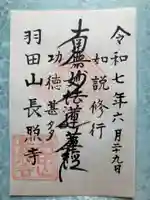 令和七年六月二十九日
如説修行
南無妙法蓮華経
功徳甚多
羽田山長照寺